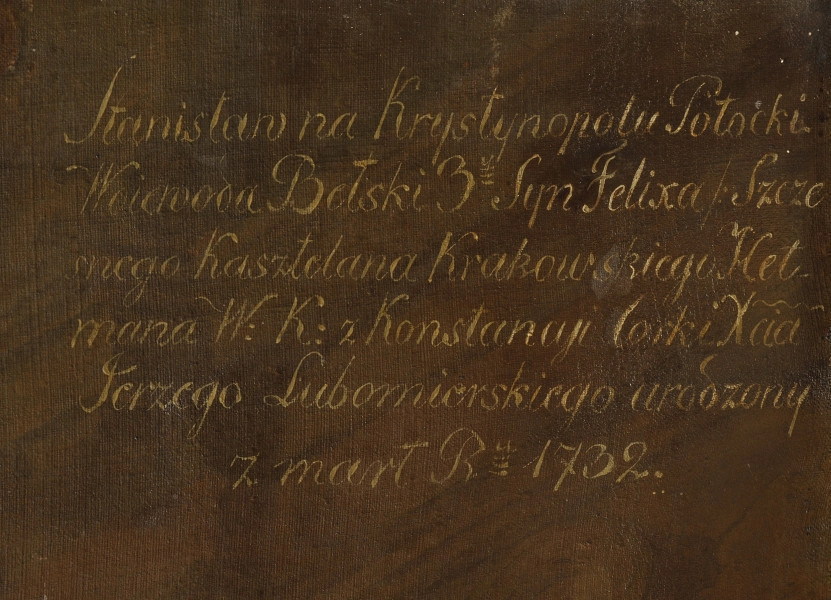 Stanisław na Krystynopolu Potocki
Woiewoda Bełski 3ci Syn Felixa /: Szcze
snego Kasztelana Krakowskiego, Het-
mana W: K: z Konstancji Corki Xcia
Jerzego Lubomierskiego urodzony
zmarł Ru 1732.